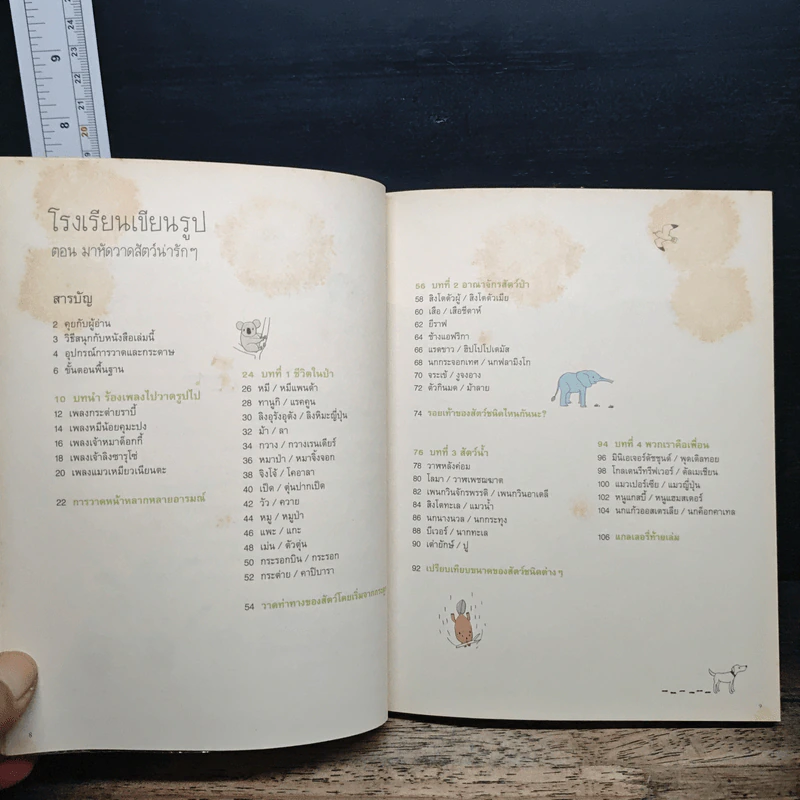 โรงเรียนเขียนรูป
ตอน มาหัดวาดสัตว์น่ารักๆ
สารบัญ
2 คุยกับผู้อ่าน
3 วิธีสนุกกับหนังสือเล่มนี้
4 อุปกรณ์การวาดและกระดาษ
6 ขั้นตอนพื้นฐาน
10 บทนำ ร้องเพลงไปวาดรูปไป
12 เพลงกระต่ายราบี้
14 เพลงหมีน้อยคุมะปง
16 เพลงเจ้าหมาด็อกกี้
18 เพลงเจ้าลิงซารุโซ่
20 เพลงแมวเหมียวเนียนตะ
22 การวาดหน้าหลากหลายอารมณ์
24 บทที่ 1 ชีวิตในป่า
26 หมี / หมีแพนด้า
28 ทานูกิ / แรคคูน
30 ลิงอุรังอุตัง / ลิงหิมะญี่ปุ่น
32 ม้า / ลา
34 กวาง / กวางเรนเดียร์
36 หมาป่า / หมาจิ้งจอก
38 จิงโจ้ / โคอาลา
40 เป็ด / ตุ่นปากเป็ด
42 วัว / ควาย
44 หมู / หมูป่า
46 แพะ / แกะ
48 เม่น / ตัวตุ่น
50 กระรอกบิน / กระรอก
52 กระต่าย / คาปิบารา
54 วาดท่าทางของสัตว์โดยเริ่มจาก
56 บทที่ 2 อาณาจักรสัตว์ป่า
58 สิงโตตัวผู้ / สิงโตตัวเมีย
60 เสือ / เสือชีตาห์
62 ยีราฟ
64 ช้างแอฟริกา
66 แรดขาว / ฮิปโปโปเตมัส
68 นกกระจอกเทศ / นกฟลามิงโก
70 จระเข้ / งูจงอาง
72 ตัวกินมด / ม้าลาย
74 รอยเท้าของสัตว์ชนิดไหนกันนะ?
76 บทที่ 3 สัตว์น้ำ
78 วาฬหลังค่อม
80 โลมา / วาฬเพชฌฆาต
82 เพนกวินจักรพรรดิ / เพนกวินอาเดลี
84 สิงโตทะเล / แมวน้ำ
86 นกนางนวล / นกกระทุง
88 บีเวอร์ / นากทะเล
90 เต่ายักษ์ / ปู
92 เปรียบเทียบขนาดของสัตว์ชนิดต่างๆ
94 บทที่ 4 พวกเราคือเพื่อน
96 มินิเอเจอร์ดัชชุนด์ / พุดเดิ้ลทอย
98 โกลเดนรีทรีฟเวอร์ / ดัลเมเชียน
100 แมวเปอร์เซีย / แมวญี่ปุ่น
102 หนูแกสบี้ / หนูแฮมสเตอร์
104 นกแก้วออสเตรเลีย / นกค็อกคาเทล
106 แกลเลอรี่ท้ายเล่ม